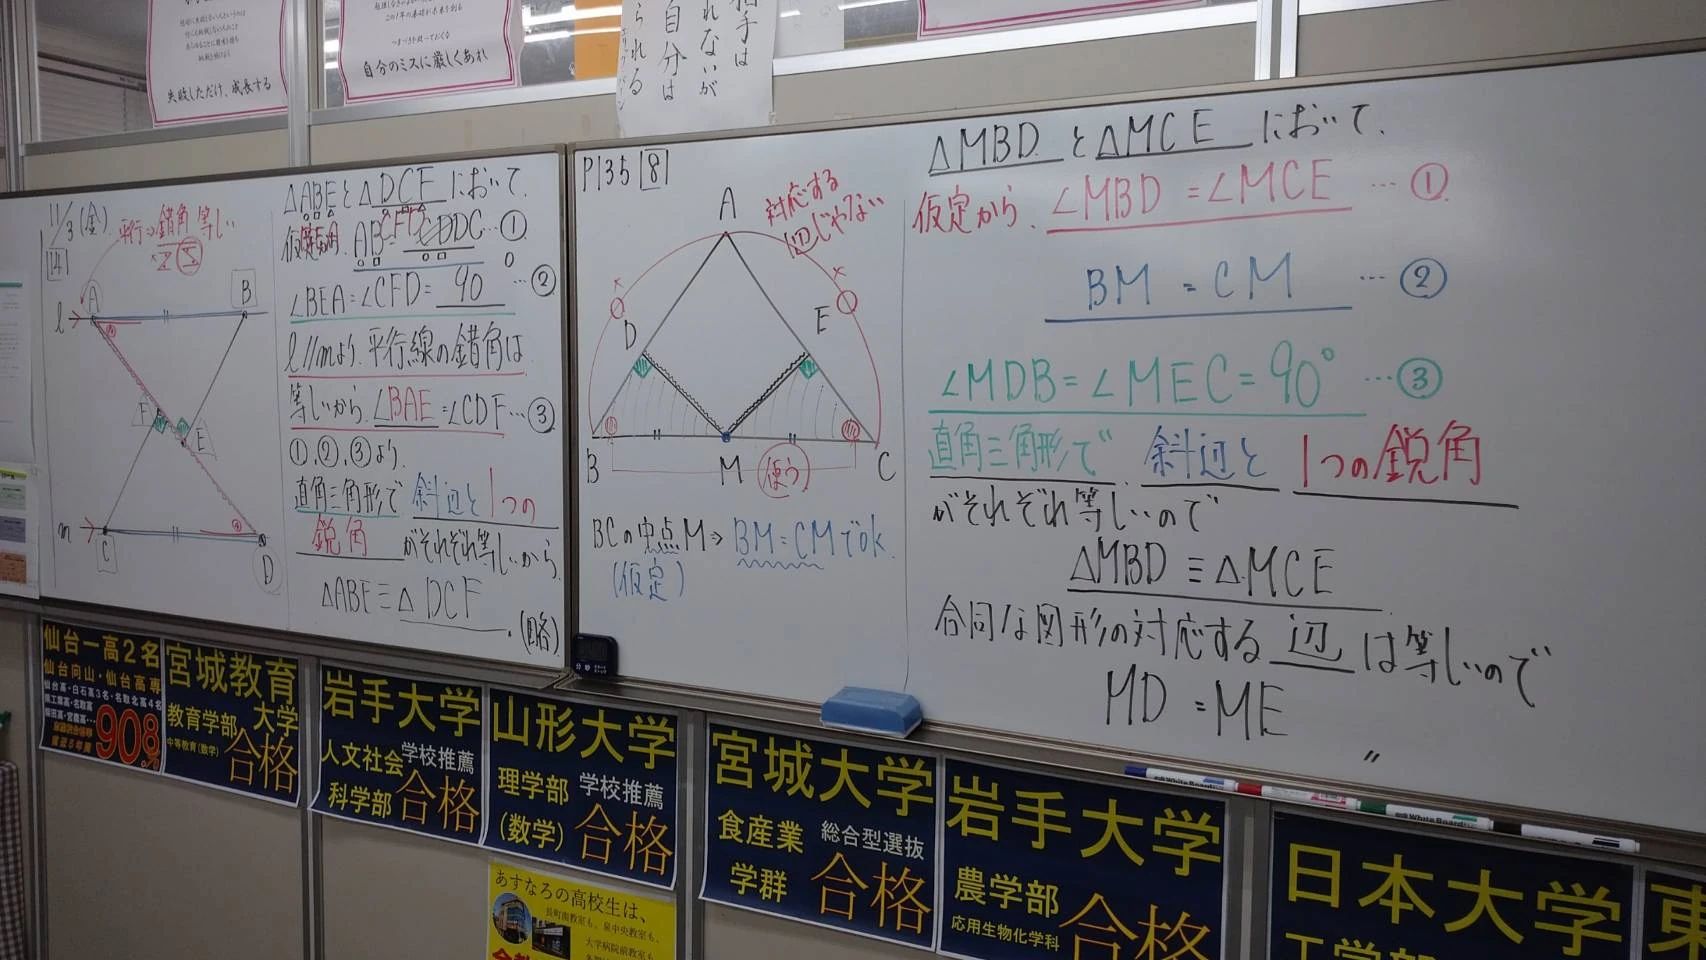 失敗しただけ、成長する
自分のミスに厳しくあれ
相手は
れないが
自分は
られる
11/3(金)
平行⇒錯角等しい
A
B
l
F
E
m
C
D
△ABEと△DCFにおいて、
仮定から、AB=DC…①
∠BEA=∠CFD=90°…②
l//mより、平行線の錯角は
等しいから、∠BAE=∠CDF…③
①、②、③より、
直角三角形で斜辺と1つの
鋭角がそれぞれ等しいから、
△ABE≡△DCF
(略)
P135 8
A
対応する
辺じゃない
D
E
B
M
使う
C
BCの中点M⇒BM=CMでok.
(仮定)
△MBDと△MCEにおいて、
仮定から、∠MBD=∠MCE…①
BM=CM…②
∠MDB=∠MEC=90°…③
直角三角形で、斜辺と1つの鋭角
がそれぞれ等しいので
△MBD≡△MCE
合同な図形の対応する辺は等しいので
MD=ME
仙台一高2名
仙台向山・仙台高専
908
宮城教育
大学
教育学部
中等教育(数学)
合格
岩手大学
人文社会
科学部
学校推薦
合格
山形大学
理学部
(数学)
学校推薦
合格
宮城大学
食産業
学群
総合型選抜
合格
岩手大学
農学部
応用生物化学科
合格
日本大学
工学部
東
あすなろの高校生は、
長町南教室も、泉中央教室も、
大学病院前教室も
WhiteBoard